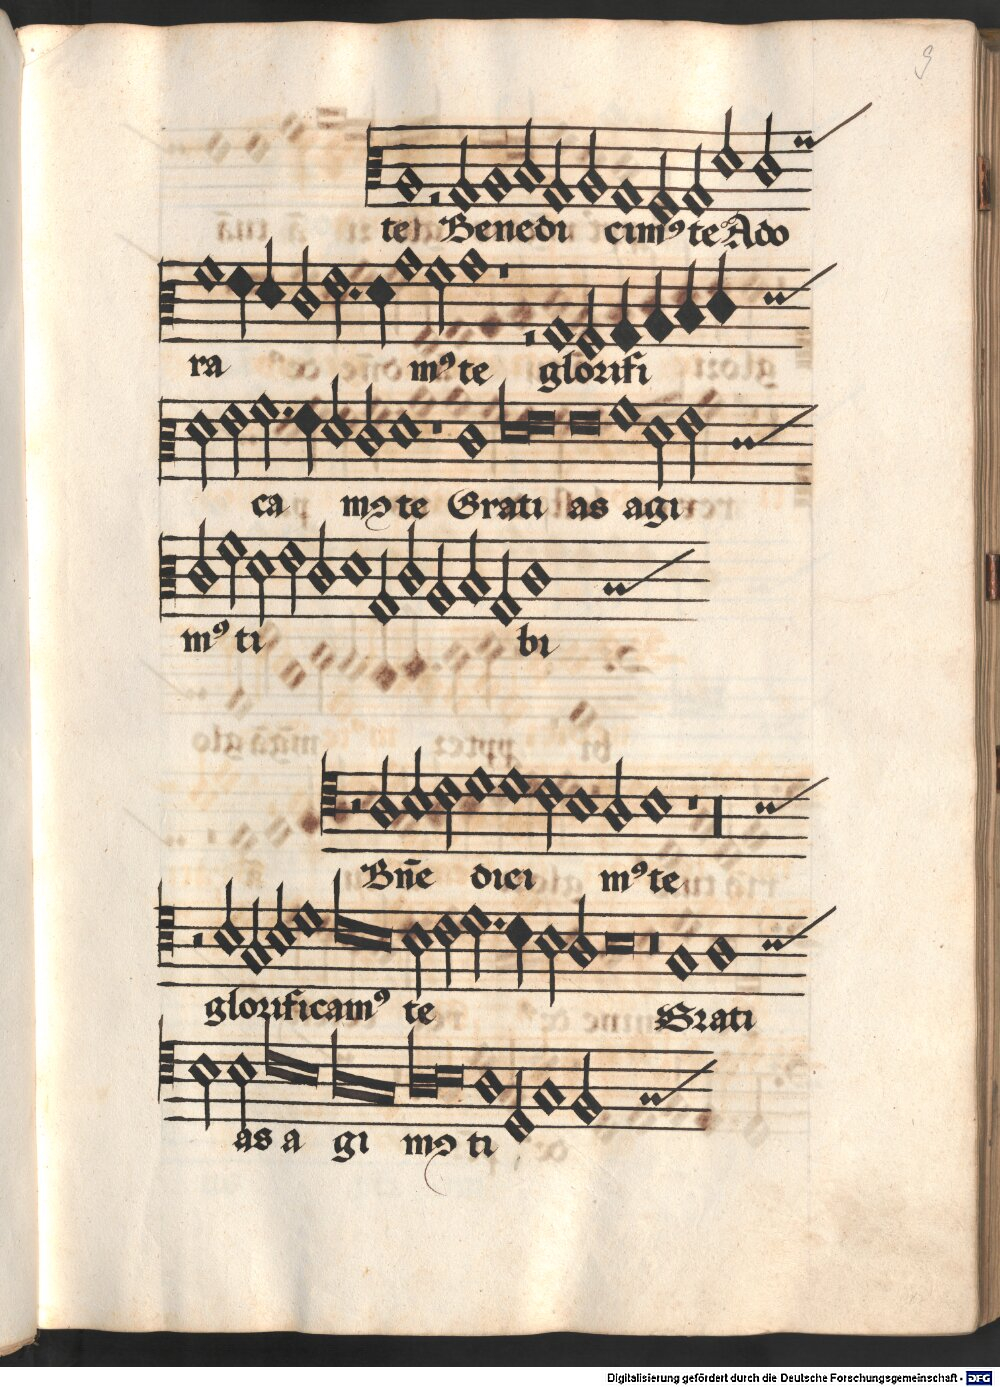 9
te Benedi cimꝰ te Ado
ra mꝰ te glorifi
ca mꝰ te Grati as agi
mꝰ ti bi
Bn̄e dici mꝰ te
glorificamꝰ te Grati
as a gi mꝰ ti
Digitalisierung gefördert durch die Deutsche Forschungsgemeinschaft - DFG